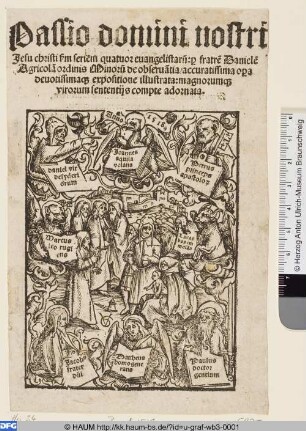 Passio domini nostri
Jesu christi scdm seriem quatuor euangelistarum: per fratre Daniele
Agricola ordinis Minoru de obseruatia/accuratissima opa
deuotissimaq; expositione illustrata: magnorumq;
virorum sententijs compte adornata.
Daniel vir
desyderi
orum
Joannes
aquila
volans
Petrus
princeps
apostolor
Marcus
leo rugi
ens
Lucas
Jacob
frater
dni
Matheus
homo gene
rans
Paulus
doctor
gentium
© Herzog Anton Ulrich-Museum Braunschweig
DFG
© HAUM http://kk.haum-bs.de/?id=u-graf-wb3-0001